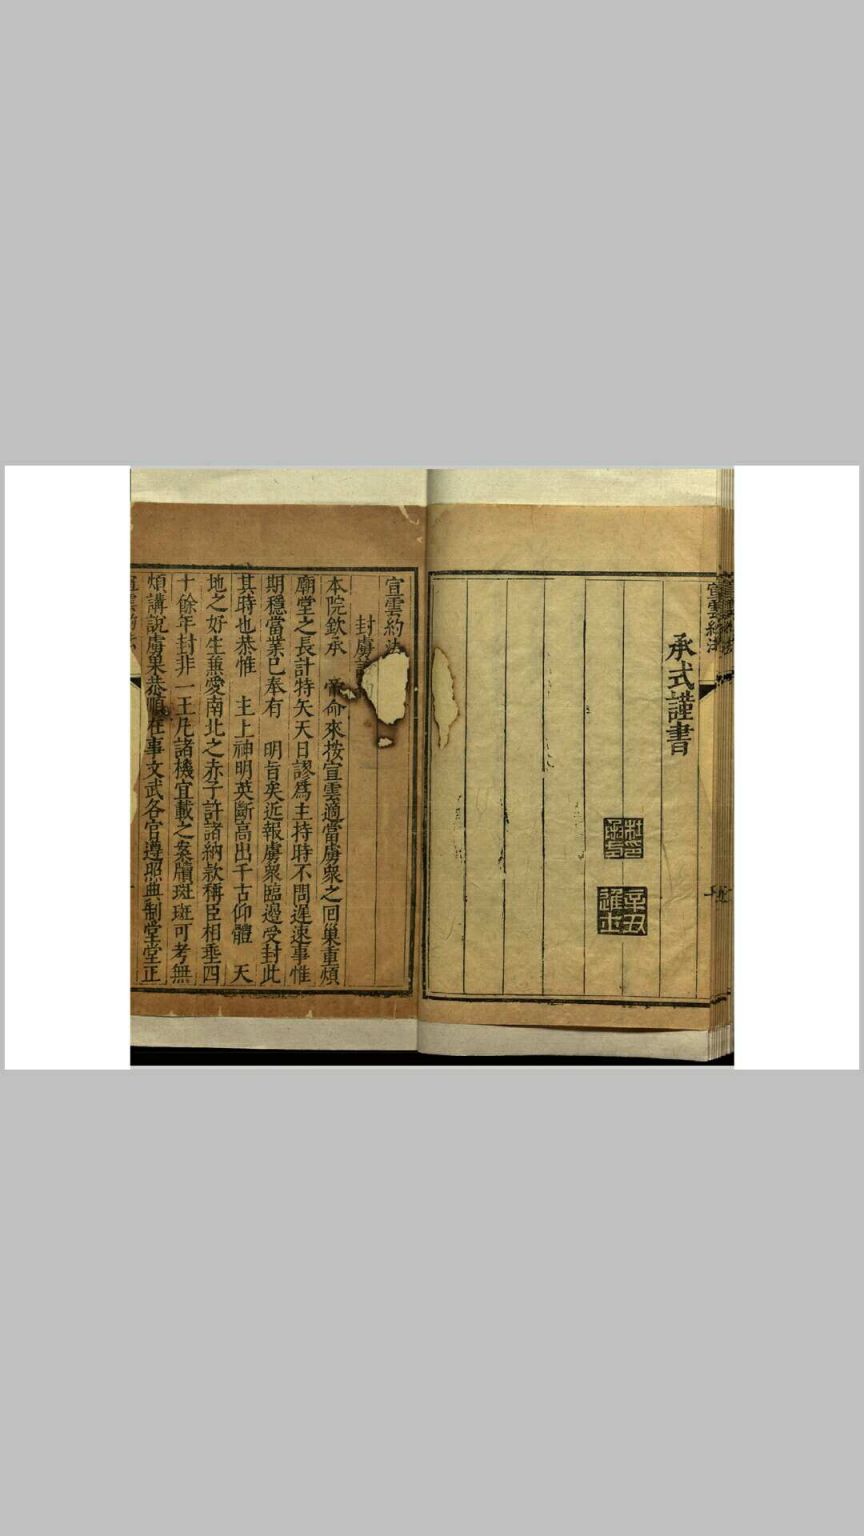 宣雲約法
承式謹書
辛丑
進士
宣雲約法
封虜
本院欽承　帝命來按宣雲適當虜衆之回巢重煩
廟堂之長計特矢天日謬爲主持時不問遲速事惟
期穩當業已奉有　明旨矣近報虜衆臨邊受封此
其時也恭惟　主上神明英斷高出千古仰體　天
地之好生兼愛南北之赤子許諸納款稱臣相垂四
十餘年封非一王凡諸機宜載之案牘斑斑可考無
煩講說虜果恭順在事文武各官遵照典制堂堂正